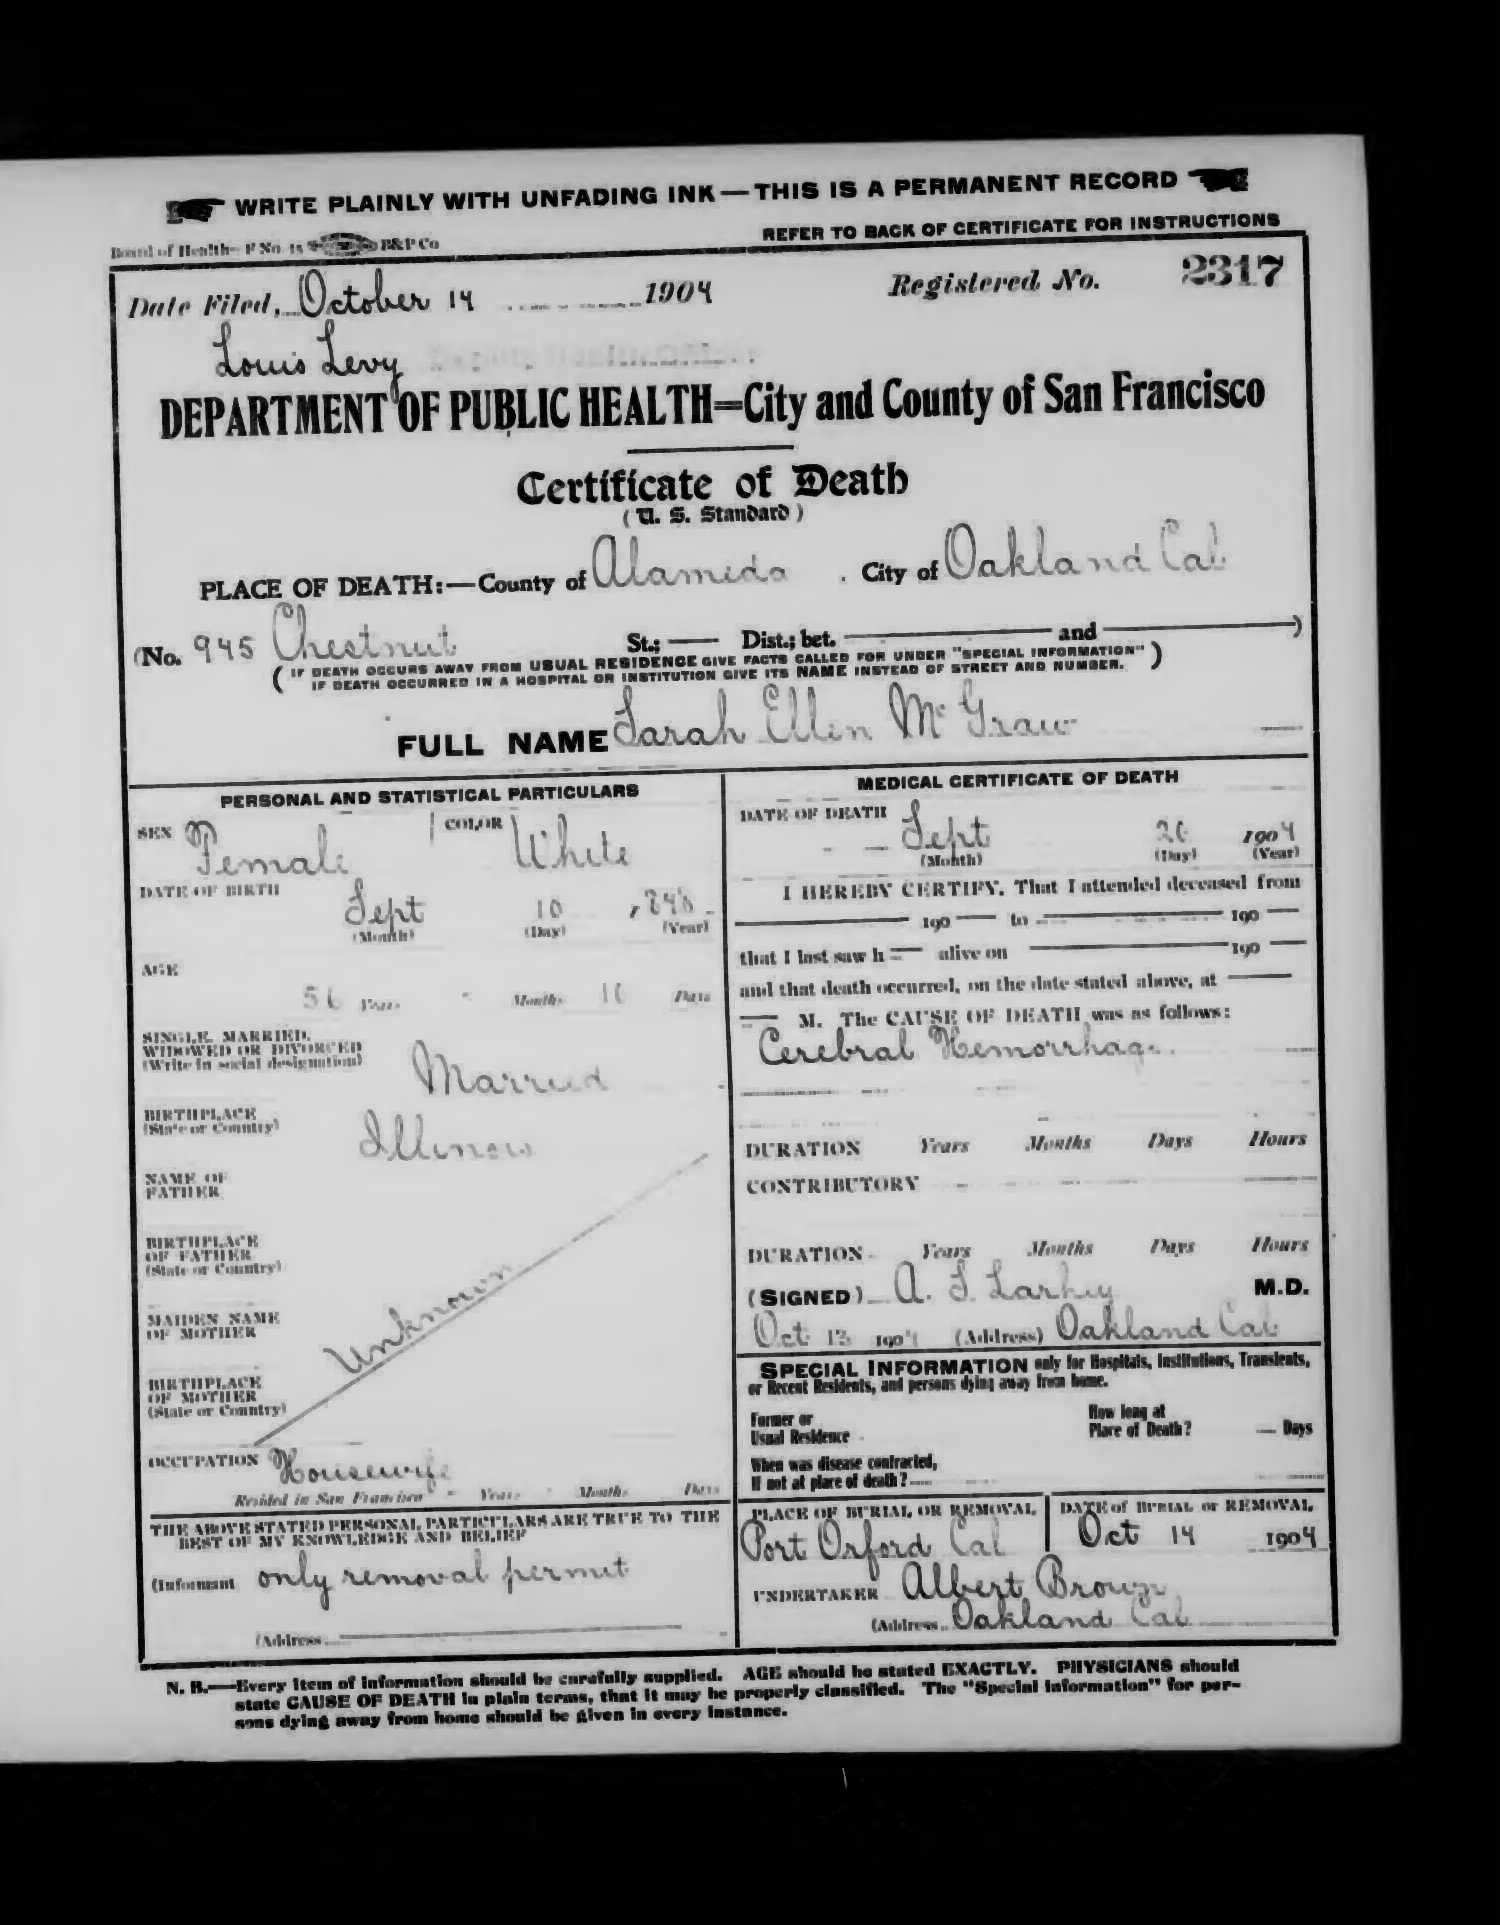 WRITE PLAINLY WITH UNFADING INK — THIS IS A PERMANENT RECORD
Board of Health—F No. 15 B&P Co
REFER TO BACK OF CERTIFICATE FOR INSTRUCTIONS
Date Filed, October 14 1904 Registered No. 2317
Louis Levy
DEPARTMENT OF PUBLIC HEALTH=City and County of San Francisco
Certificate of Death
(U. S. Standard)
PLACE OF DEATH:—County of Alameda . City of Oakland Cal
(No. 945 Chestnut St.; — Dist.; bet. — and — )
( IF DEATH OCCURS AWAY FROM USUAL RESIDENCE GIVE FACTS CALLED FOR UNDER "SPECIAL INFORMATION" )
IF DEATH OCCURRED IN A HOSPITAL OR INSTITUTION GIVE ITS NAME INSTEAD OF STREET AND NUMBER.
FULL NAME Sarah Ellen McGraw
PERSONAL AND STATISTICAL PARTICULARS
SEX Female COLOR White
DATE OF BIRTH
Sept 10 1848
(Month) (Day) (Year)
AGE
56 Years - Months 16 Days
SINGLE, MARRIED,
WIDOWED OR DIVORCED
(Write in social designation)
Married
BIRTHPLACE
(State or Country)
Illinois
NAME OF
FATHER
BIRTHPLACE
OF FATHER
(State or Country)
MAIDEN NAME
OF MOTHER
Unknown
BIRTHPLACE
OF MOTHER
(State or Country)
OCCUPATION Housewife
Resided in San Francisco - Years Months Days
THE ABOVE STATED PERSONAL PARTICULARS ARE TRUE TO THE
BEST OF MY KNOWLEDGE AND BELIEF
(Informant only removal permit
(Address
MEDICAL CERTIFICATE OF DEATH
DATE OF DEATH
Sept 26 1904
(Month) (Day) (Year)
I HEREBY CERTIFY, That I attended deceased from
— 190 — to — 190 —
that I last saw h — alive on — 190 —
and that death occurred, on the date stated above, at —
— M. The CAUSE OF DEATH was as follows:
Cerebral Hemorrhage.
DURATION Years Months Days Hours
CONTRIBUTORY
DURATION Years Months Days Hours
(SIGNED) A. S. Larkey M.D.
Oct 13 1904 (Address) Oakland Cal
SPECIAL INFORMATION only for Hospitals, Institutions, Transients,
or Recent Residents, and persons dying away from home.
Former or
Usual Residence
How long at
Place of Death? — Days
When was disease contracted,
If not at place of death?
PLACE OF BURIAL OR REMOVAL
Port Orford Cal
DATE of BURIAL or REMOVAL
Oct 14 1904
UNDERTAKER Albert Brown
(Address Oakland Cal
N. B.—Every item of information should be carefully supplied. AGE should be stated EXACTLY. PHYSICIANS should
state CAUSE OF DEATH in plain terms, that it may be properly classified. The "Special Information" for per-
sons dying away from home should be given in every instance.